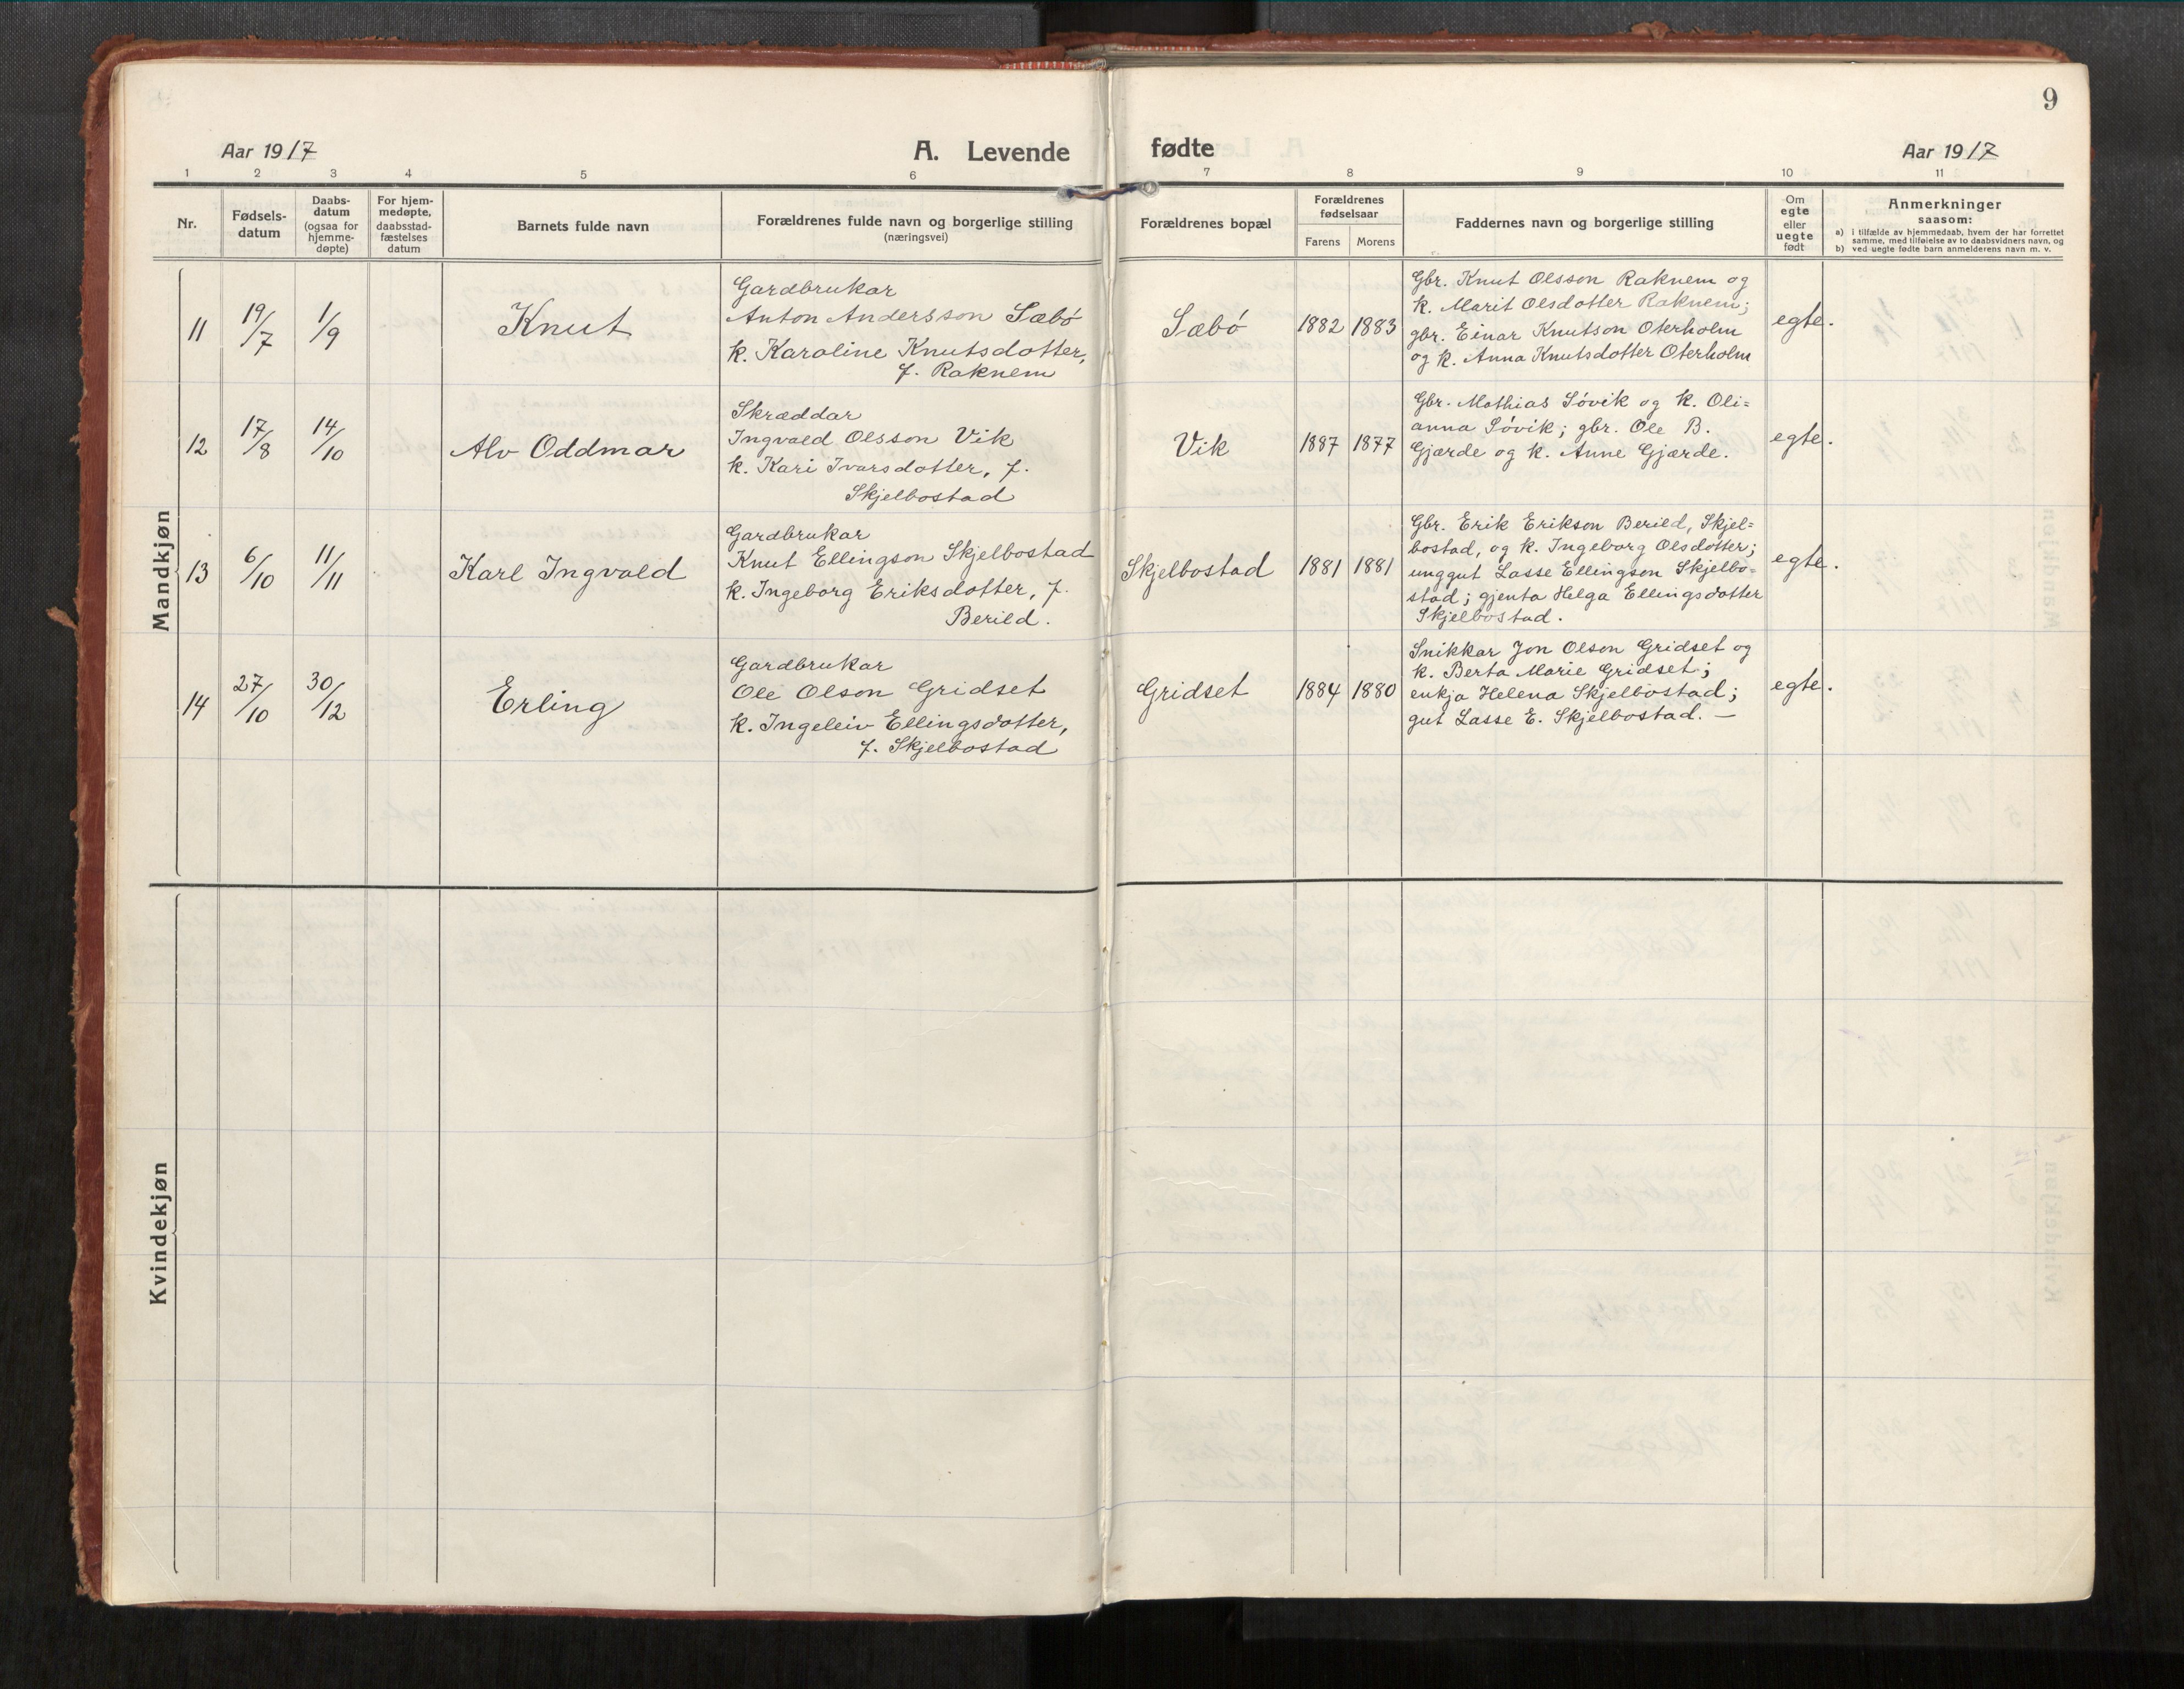 9
Aar 1917
A. Levende
fødte
Aar 1917
1 2 3 4 5 6 7 8 9 10 11
Nr.
Fødsels-
datum
Daabs-
datum
(ogsaa for
hjemme-
døpte)
For hjem-
medøpte,
daabsstad-
fæstelses
datum
Barnets fulde navn
Forældrenes fulde navn og borgerlige stilling
(næringsvei)
Forældrenes bopæl
Forældrenes
fødselsaar
Farens Morens
Faddernes navn og borgerlige stilling
Om
egte
eller
uegte
født
Anmerkninger
saasom:
a) i tilfælde av hjemmedaab, hvem der har forrettet
samme, med tilføielse av to daabsvidners navn, og
b) ved uegte fødte barn anmelderens navn m. v.
Mandkjøn
11
19/7
1/9
Knut
Gardbrukar
Anton Andersson Sæbó
k. Karoline Knutsdotter,
f. Raknem
Sæbó
1882 1883
Gbr. Knut Olsson Raknem og
k. Marit Olsdotter Raknem;
gbr. Einar Knutson Oterholm
og k. Anna Knutsdotter Oterholm
egte.
12
17/8
14/10
Alv Oddmar
Skræddar
Ingvald Olsson Vik
k. Kari Ivarsdotter, f.
Skjelbostad
Vik
1887 1877
Gbr. Mathias Sóvik og k. Oli=
anna Sóvik; gbr. Ole B.
Gjærde og k. Anne Gjærde.
egte.
13
6/10
11/11
Karl Ingvald
Gardbrukar
Knut Ellingson Skjelbostad
k. Ingeborg Eriksdotter, f.
Berild.
Skjelbostad
1881 1881
Gbr. Erik Erikson Berild, Skjel=
bostad, og k. Ingeborg Olsdotter;
unggut Lasse Ellingson Skjelbo=
stad; gjenta Helga Ellingsdotter
Skjelbostad.
egte.
14
27/10
30/12
Erling
Gardbrukar
Ole Olson Gridset
k. Ingeleiv Ellingsdotter,
f. Skjelbostad
Gridset
1884 1880
Snikkar Jon Olson Gridset og
k. Berta Marie Gridset;
enkja Helena Skjelbostad;
gut Lasse E. Skjelbostad. —
egte.
Kvindekjøn